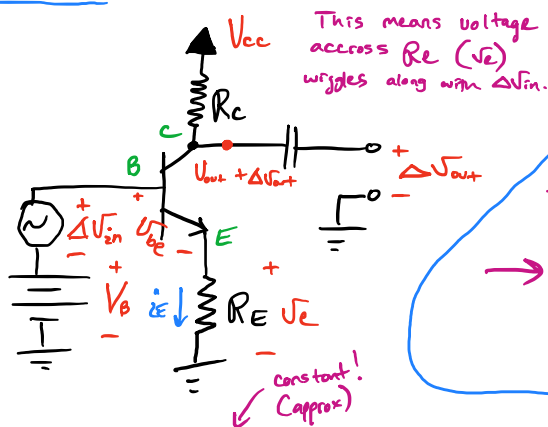 This means voltage
accross Re (Ve)
wiggles along with ΔVin.
Vcc
Rc
C
B
Vout + ΔVout
+
ΔVout
-
+
ΔVin
-
+
Vbe
-
E
+
VB
-
iE ↓
RE
+
Ve
-
constant!
(approx)